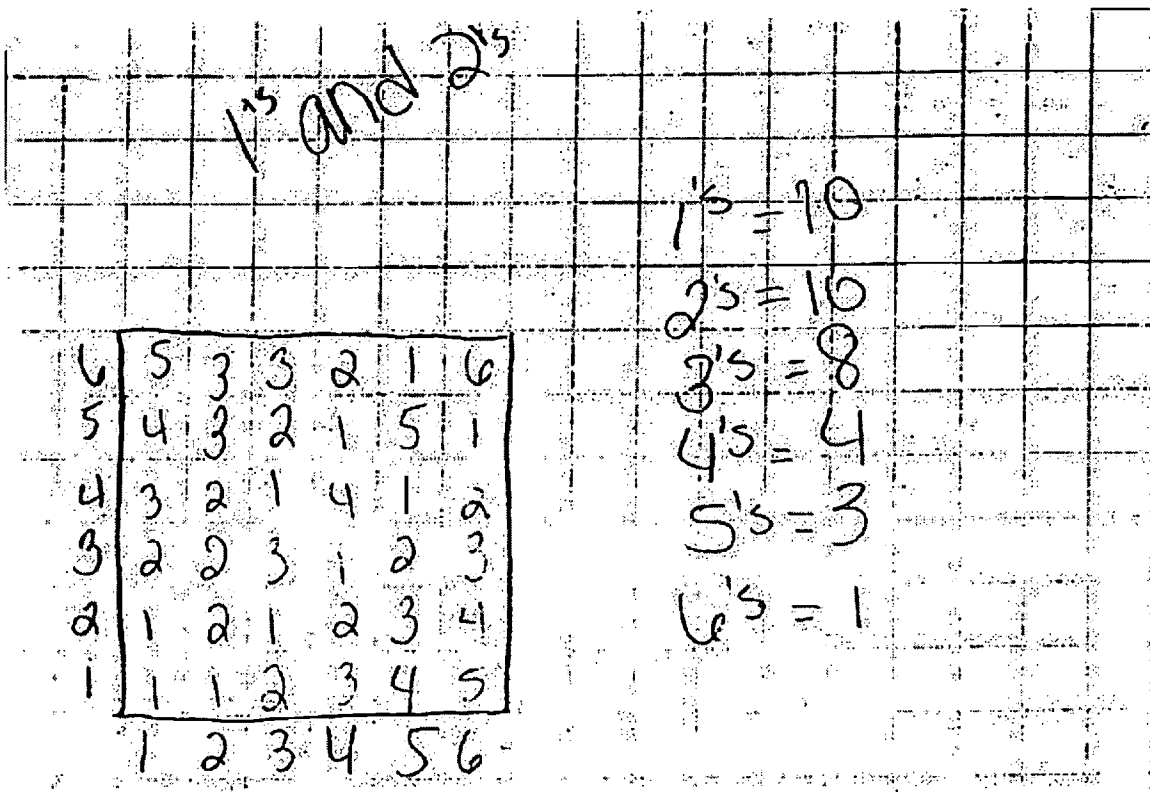 1's and 2's
1's = 10
2's = 10
3's = 8
4's = 4
5's = 3
6's = 1
6 5 3 3 2 1 6
5 4 3 2 1 5 1
4 3 2 1 4 1 2
3 2 2 3 1 2 3
2 1 2 1 2 3 4
1 1 1 2 3 4 5
1 2 3 4 5 6